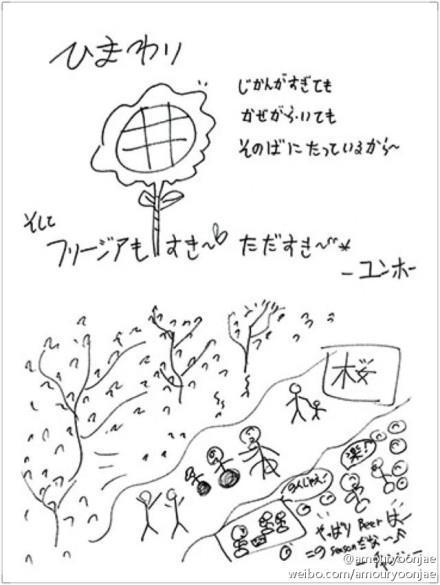 ひまわり
じかんがすぎても
かぜがふいても
そのばにたっているから〜
そして
フリージアもすき〜♡ ただすき〜*
-ユンホ-
桜
楽!
のんじゃえ!
やっぱり Beer は〜
この season だな〜♪
@amouryoonjae
weibo.com/amouryoonjae